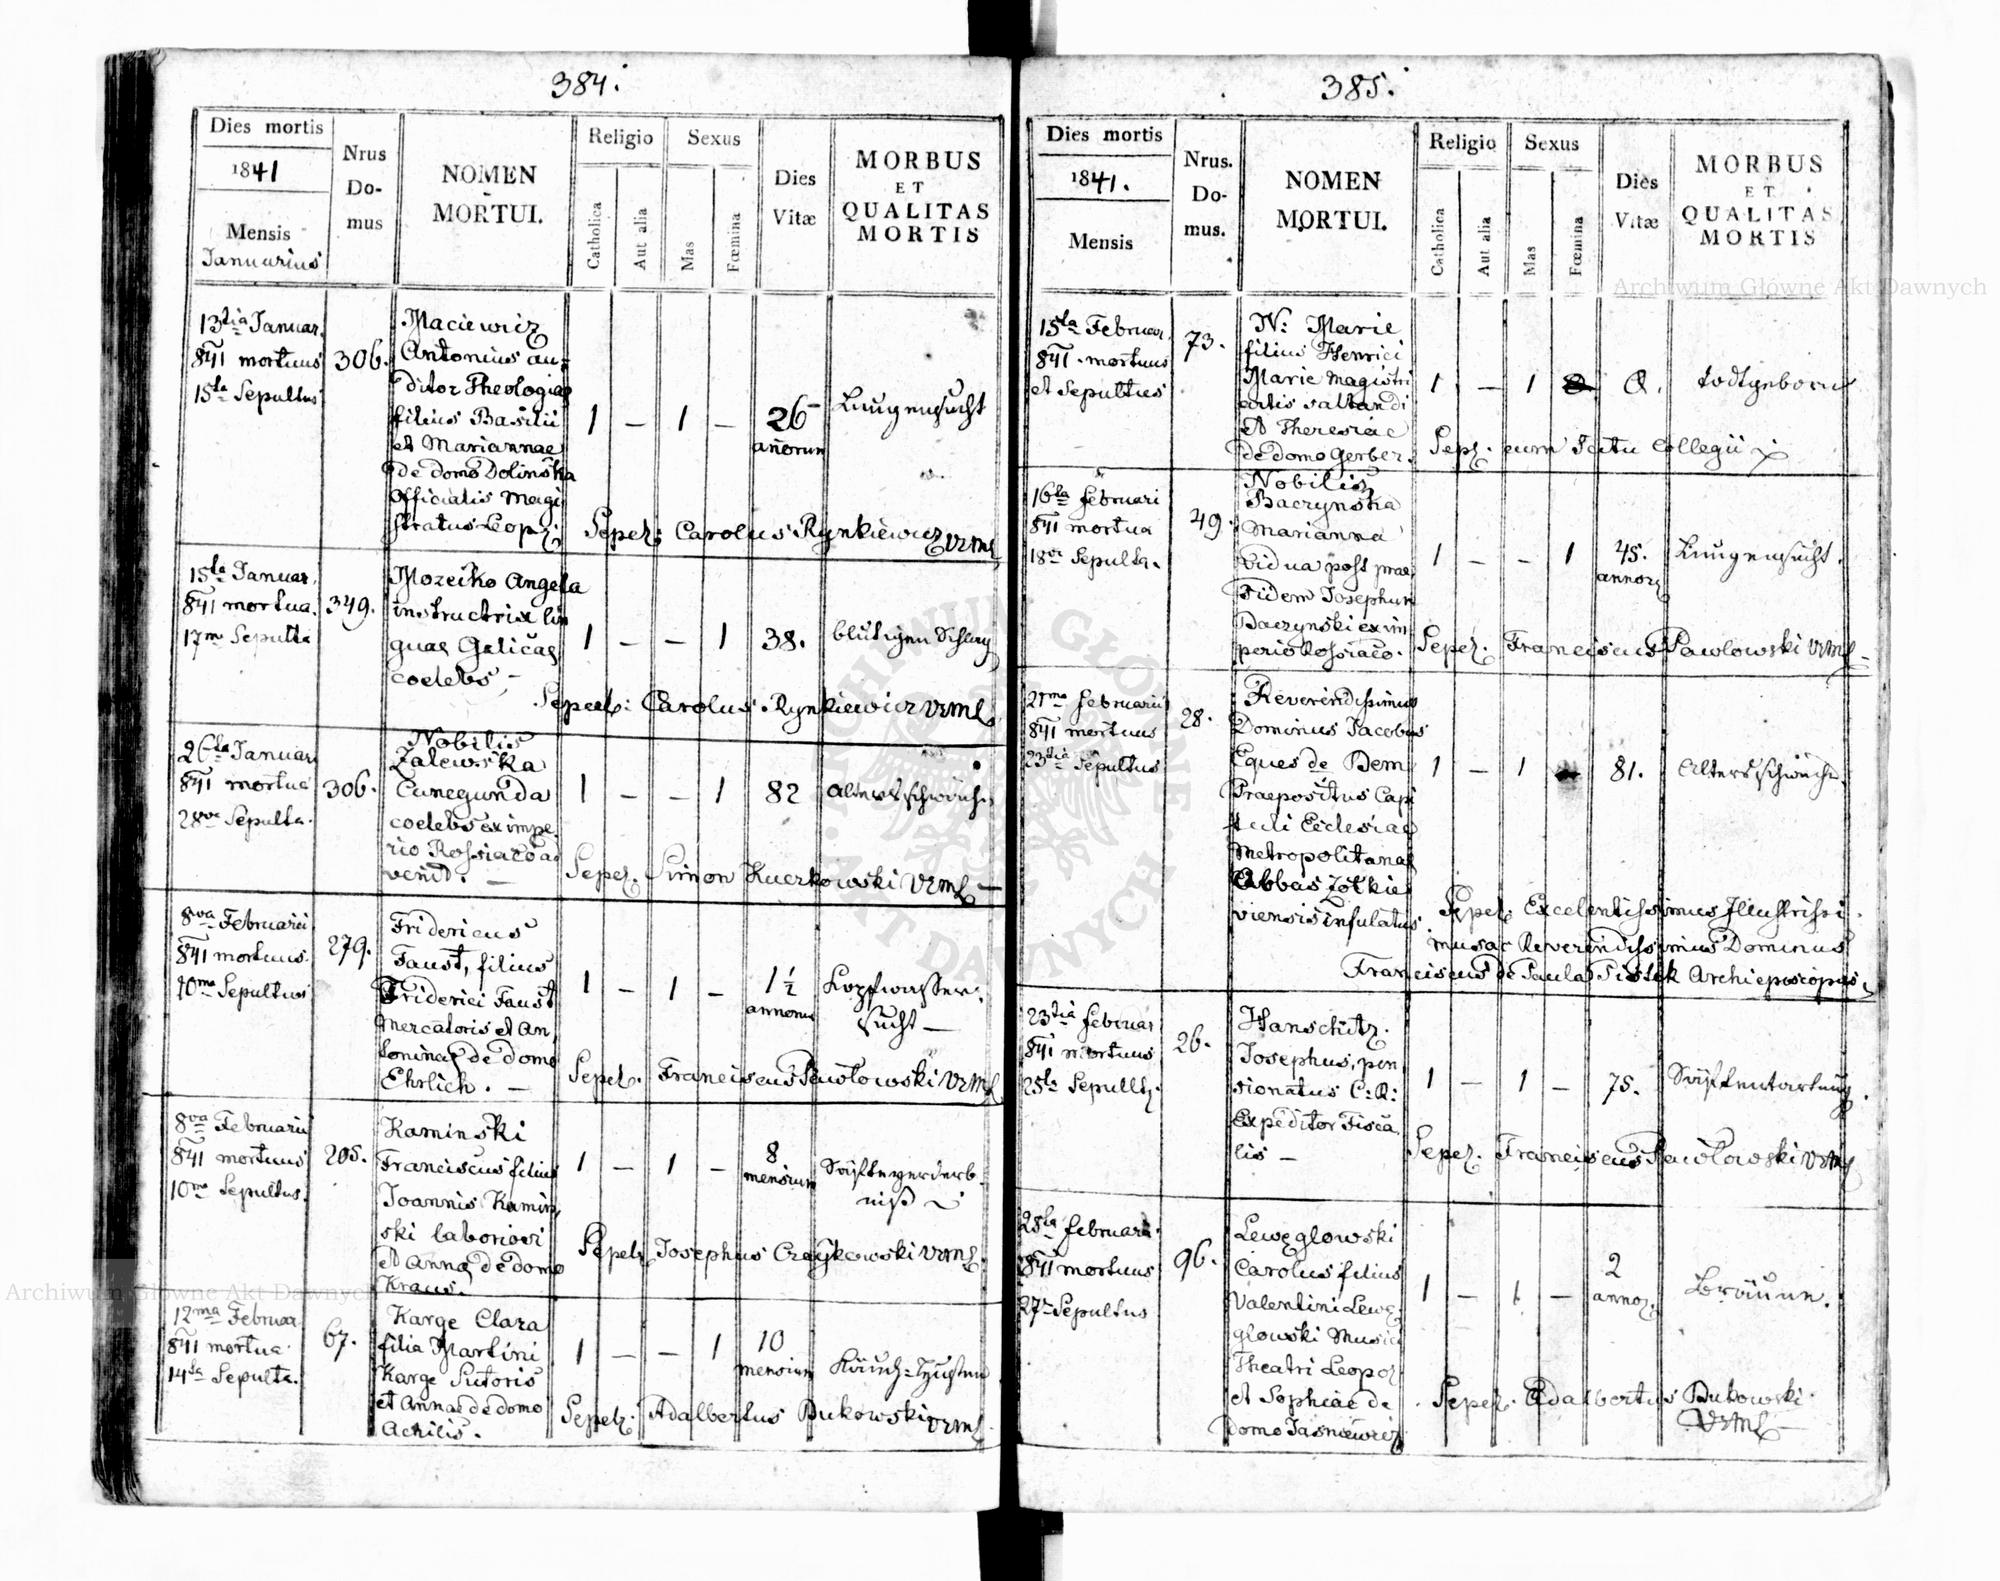 384.
Dies mortis
1841
Mensis
Januarius
Nrus
Do-
mus
NOMEN
MORTUI.
Religio
Catholica
Aut alia
Sexus
Mas
Fœmina
Dies
Vitæ
MORBUS
ET
QUALITAS
MORTIS
13tia Januar.
841 mortuus
15ta Sepultus
306.
Maciewicz
Antonius au=
ditor Theologiae
filius Basilii
et Mariannae
de domo Dolinska
officialis Magi
stratus Leopol:
1 — 1 —
26
anorum
Lungensucht
Sepel: Carolus Rynkiewicz VRML
15ta Januar.
841 mortua.
17ma Sepulta
349.
Mozeiko Angela
instructrix lin
guae Galicae
coelebs —
1 — — 1
38.
blutigen Schlag
Sepel: Carolus Rynkiewicz VRML
26ta Januar
841 mortua
28va Sepulta.
306.
Nobilis
Zalewska
Cunegunda
coelebs ex impe
rio Rossiaco ad
venit. —
1 — — 1
82
Altersschwäche
Sepel. Simon Kuczkowski VRML —
8va Februarii
841 mortuus.
10ma Sepultus
279.
Fridericus
Faust, filius
Friderici Faust
mercatoris et An
toninae de domo
Ehrlich. —
1 — 1 —
1 ½
annorum
Kopfwasser
sucht —
Sepel. Franciscus Pawlowski VRML
8va Februarii
841 mortuus
10ma Sepultus.
205.
Kaminski
Franciscus filius
Joannis Kamin
ski laboriosi
et Annae de domo
Kraus.
1 — 1 —
8
mensium
Säfteverderb
niß
Sepel. Josephus Czaykowski VRML.
12ma Februar
841 mortua
14ta Sepulta.
67.
Karge Clara
filia Martini
Karge Sutoris
et Annae de domo
Achilis.
1 — — 1
10
mensium
Keuch=Husten
Sepel. Adalbertus Bukowski VRML
385.
Dies mortis
1841.
Mensis
Nrus.
Do-
mus.
NOMEN
MORTUI.
Religio
Catholica
Aut alia
Sexus
Mas
Fœmina
Dies
Vitæ
MORBUS
ET
QUALITAS
MORTIS
15ta Februar
841. mortuus
et Sepultus
73.
N: Marie
filius Henrici
Marie magistri
artis saltandi
et Theresiae
de domo Gerber.
1 — 1
0.
todtgeboren
Sepel. cum Scitu Collegii
16ta Februari
841 mortua
18va Sepulta.
49.
Nobilis
Baczynska
Marianna
vidua post prae
fidem Josephum
Baczynski ex im
perio Rossiaco.
1 — — 1
45.
annor
Lungensucht.
Sepel. Franciscus Pawlowski VRML —
21ma Februarii
841 mortuus
23tia Sepultus
28.
Reverendissimus
Dominus Jacobus
Eques de Bem
Praepositus Capi
tuli Ecclesiae
Metropolitanae
Abbas Zotkie
viensis infulatus.
1 — 1
81.
Altersschwäche.
Sepel. Excelentissimus Illustrissi
mus ac Reverendissimus Dominus
Franciscus de Paula Pistek Archiepiscopus.
23tia Februar
841 mortuus
25ta Sepult.
26.
Hanschitz.
Josephus, pen
sionatus C: R:
Expeditor Fisca
lis —
1 — 1 —
75.
Säftentartung.
Sepel. Franciscus Pawlowski VRML
25ta Februarii.
841 mortuus
27 Sepultus
96.
Lewęglowski
Carolus filius
Valentini Lewę
glowski Musici
Theatri Leopol
et Sophiae de
domo Jasniewicz
1 — 1 —
2
annor.
Bräune.
Sepel. Adalbertus Bukowski
VRML —
Archiwum Główne Akt Dawnych
Archiwum Główne Akt Dawnych
ARCHIWUM GŁÓWNE
AKT DAWNYCH